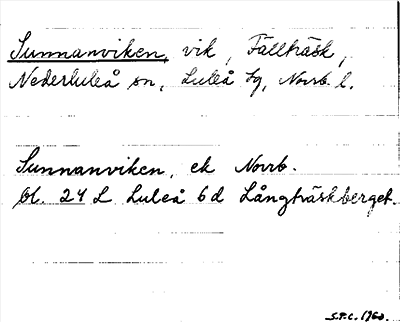 Sunnanviken, vik, Fällträsk,
Nederluleå sn, Luleå tg, Norrb. l.
Sunnanviken, ek Norrb.
bl. 24 L Luleå 6d Långträskberget.
S.P.C. 1960.